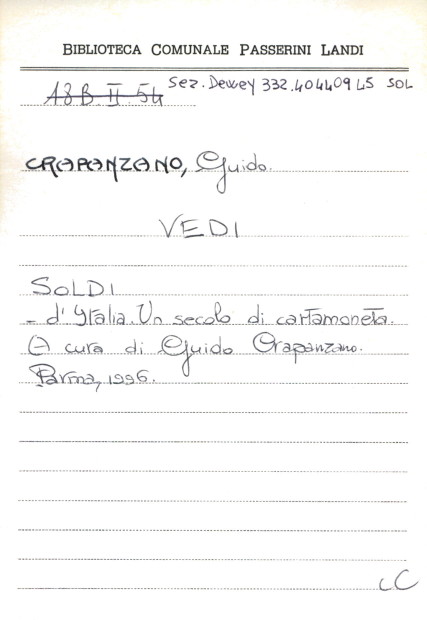 BIBLIOTECA COMUNALE PASSERINI LANDI
A8B II 54 Sez. Dewey 332.40440945 SOL
CRAPANZANO, Guido.
VEDI
SOLDI
- d'Italia. Un secolo di cartamoneta.
A cura di Guido Crapanzano.
Parma, 1996.
CC